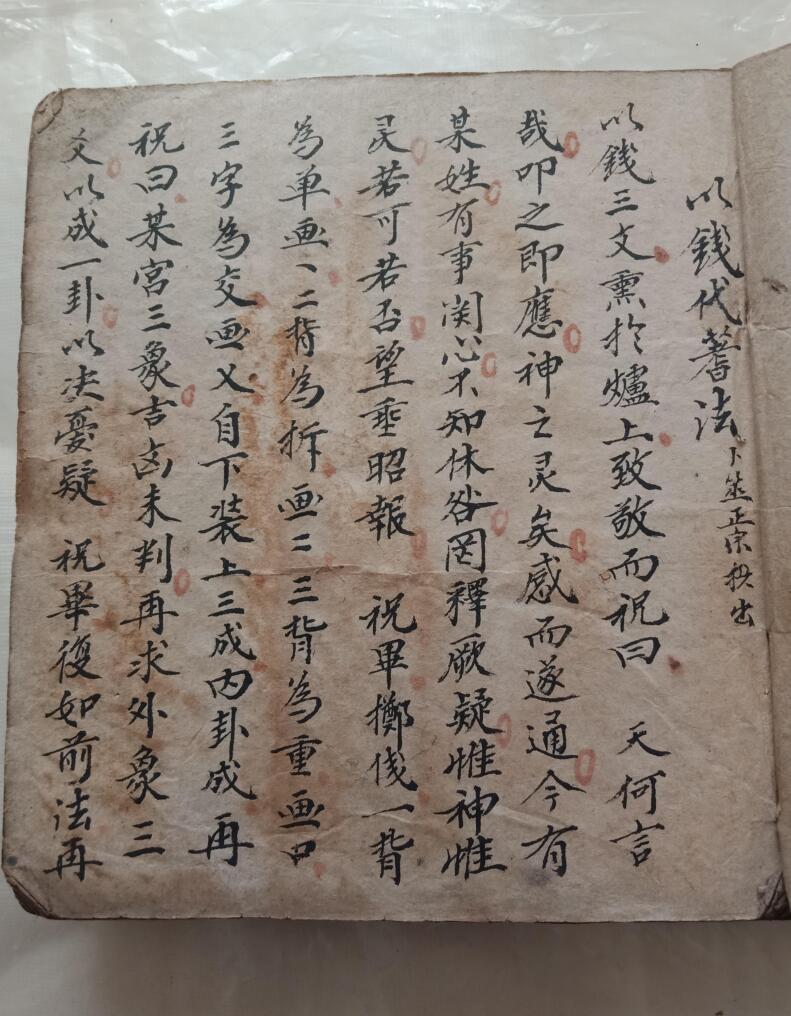 以錢代蓍法卜筮正宗秘出
以錢三文熏於爐上致敬而祝曰 天何言
哉叩之即應神之灵矣感而遂通今有
某姓有事関心不知休咎罔釋厥疑惟神惟
灵若可若否望垂昭報 祝畢擲伐一背
為单画丶二背為拆画二三背為重画口
三字為交画乂自下装上三成内卦成再
祝曰某宫三象吉凶未判再求外象三
爻以成一卦以决憂疑 祝畢復如前法再